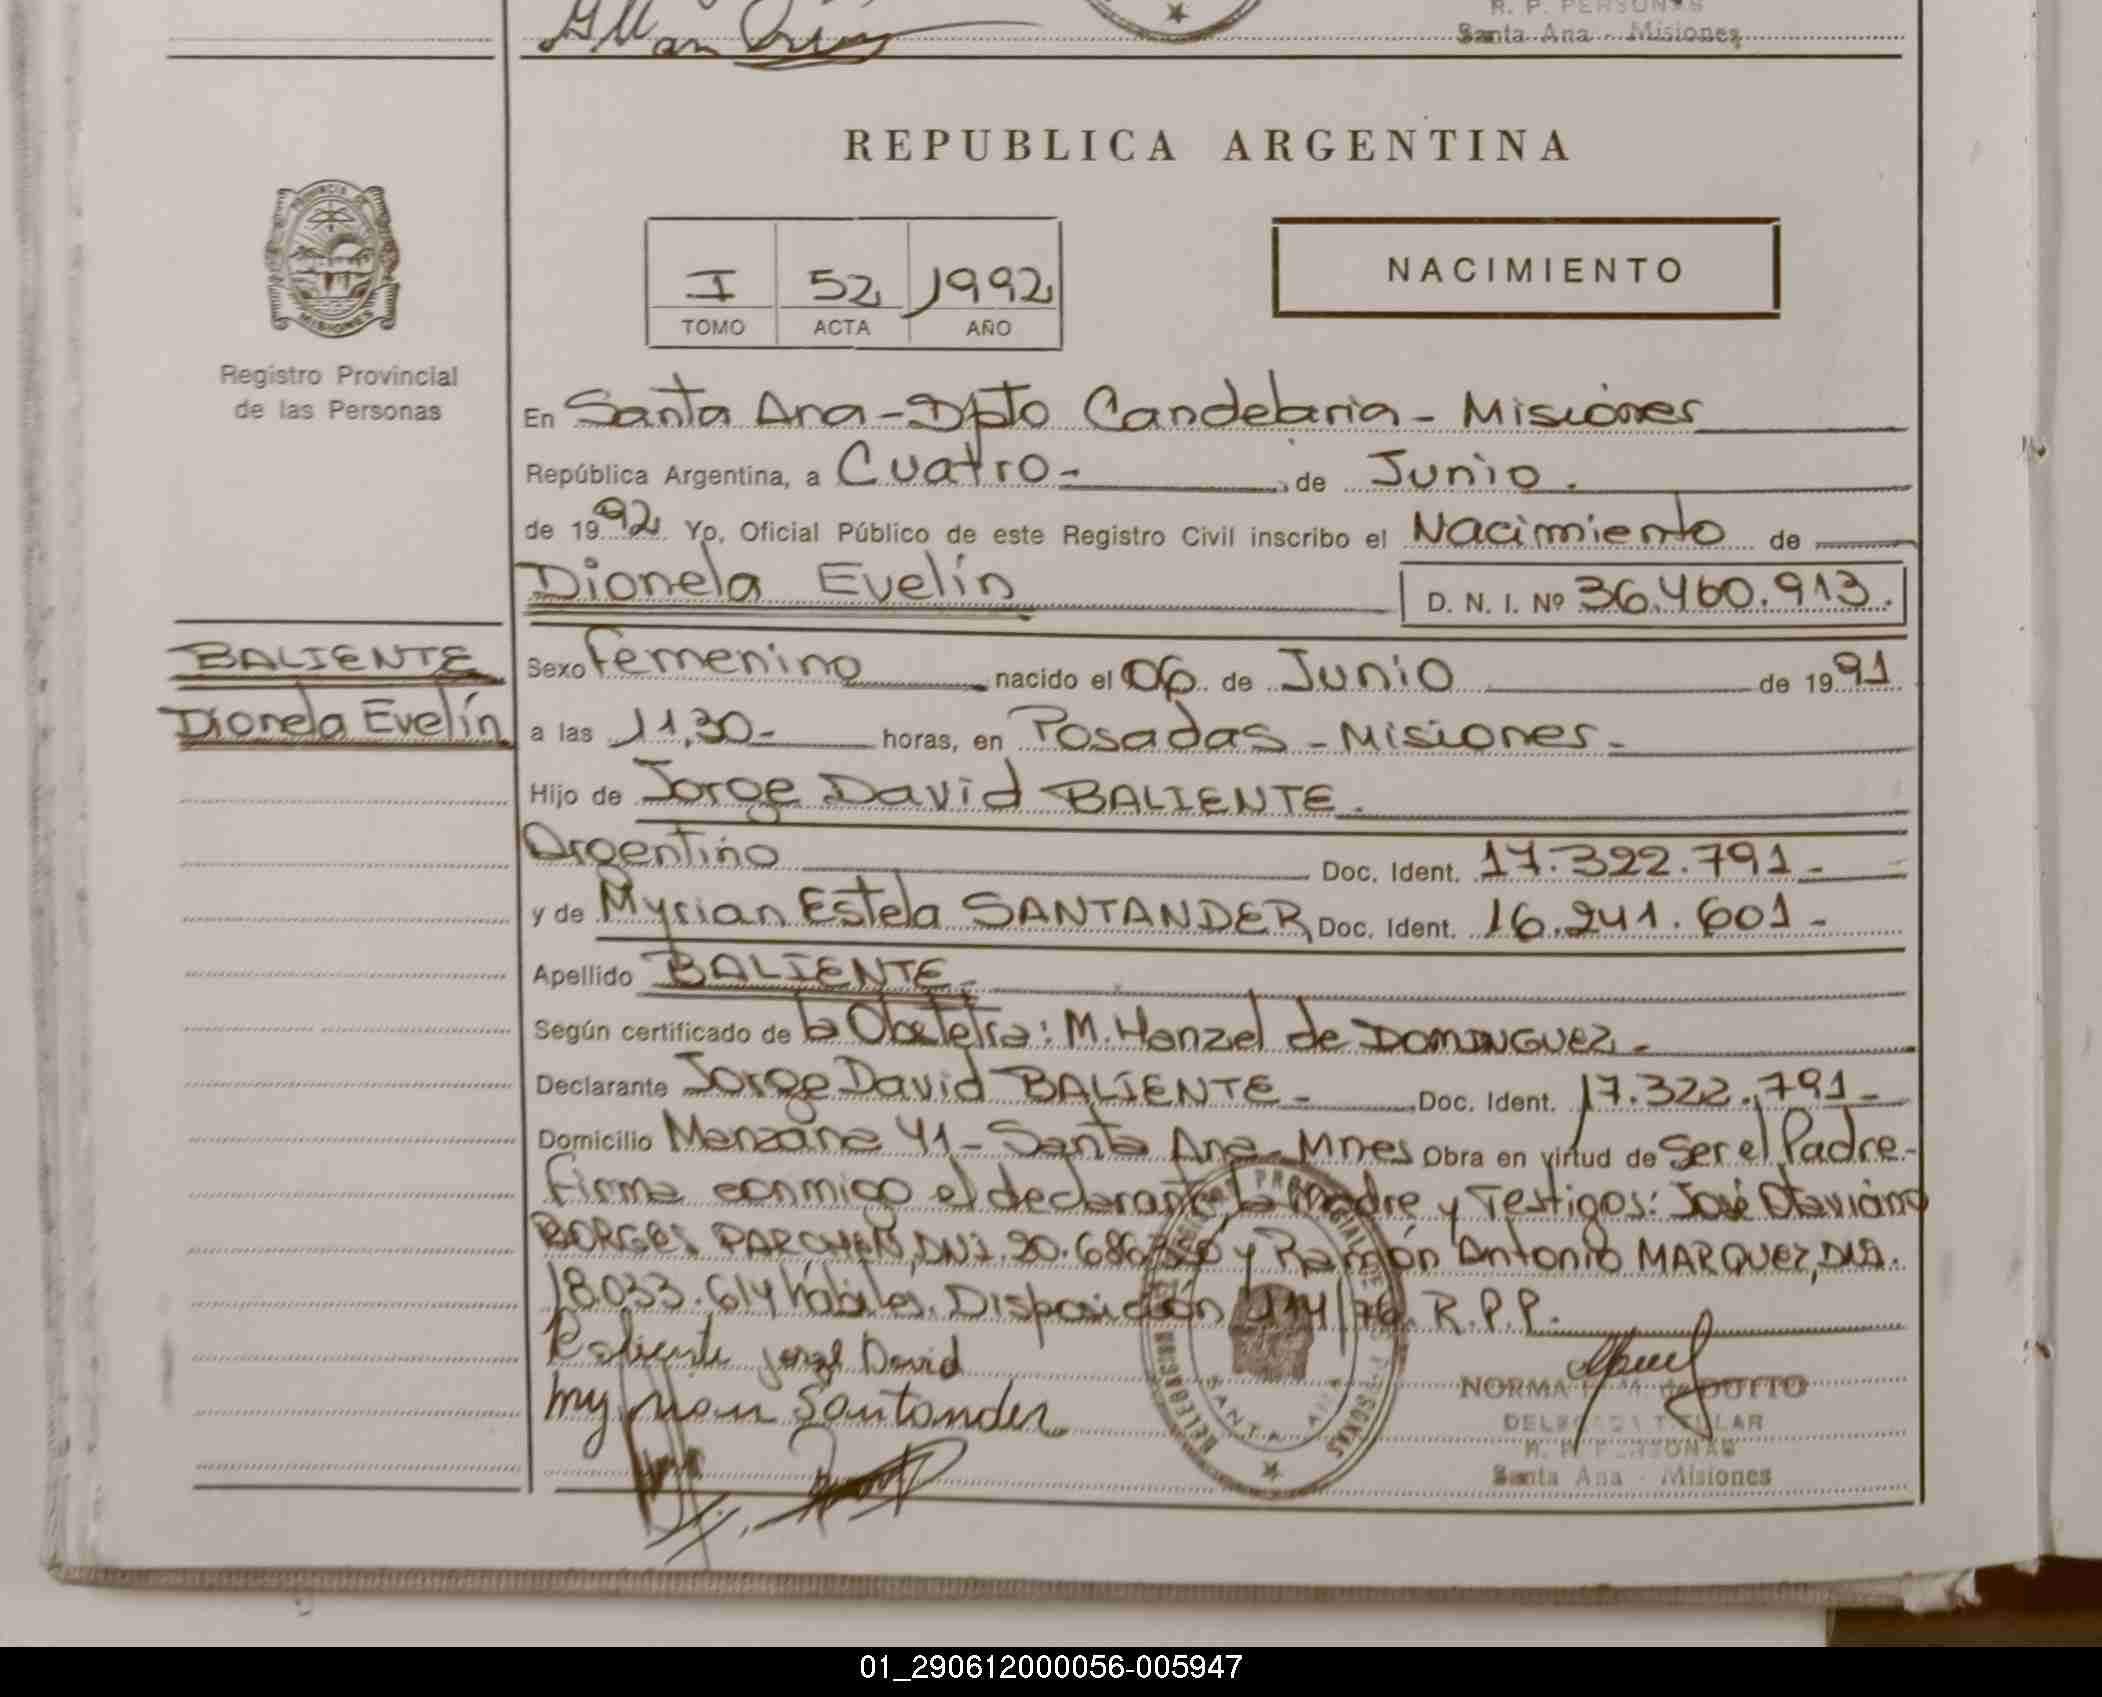 R. P. PERSONAS
Santa Ana - Misiones
REPUBLICA ARGENTINA
PROVINCIA DE
MISIONES
Registro Provincial
de las Personas
I 52 1992
TOMO ACTA AÑO
NACIMIENTO
En Santa Ana - Dpto Candelaria - Misiones
República Argentina, a Cuatro - de Junio.
de 1992 Yo, Oficial Público de este Registro Civil inscribo el Nacimiento de
Dionela Evelín D. N. I. Nº 36.460.913.
BALIENTE
Dionela Evelín
Sexo Femenino nacido el 06 de Junio de 1991
a las 11,30- horas, en Posadas - Misiones -
Hijo de Jorge David BALIENTE.
Argentino Doc. Ident. 17.322.791-
y de Myrian Estela SANTANDER Doc. Ident. 16.241.601-
Apellido BALIENTE-
Según certificado de la Obstetra: M. Hanzel de DOMINGUEZ -
Declarante Jorge David BALIENTE - Doc. Ident. 17.322.791-
Domicilio Manzana 41 - Santa Ana - Mnes Obra en virtud de Ser el Padre -
Firma conmigo el declarante, la Madre y Testigos: José Otaviano
BORGES PARCHEN, DNI. 20.686. y Ramón Antonio MARQUEZ, DNI.
18.033.614 hábiles. Disposición /76. R.P.P.
Baliente Jorge David
Myrian Santander
NORMA de DUTTO
DELEGADA TITULAR
R. P. PERSONAS
Santa Ana - Misiones
SANTA ANA
01_290612000056-005947